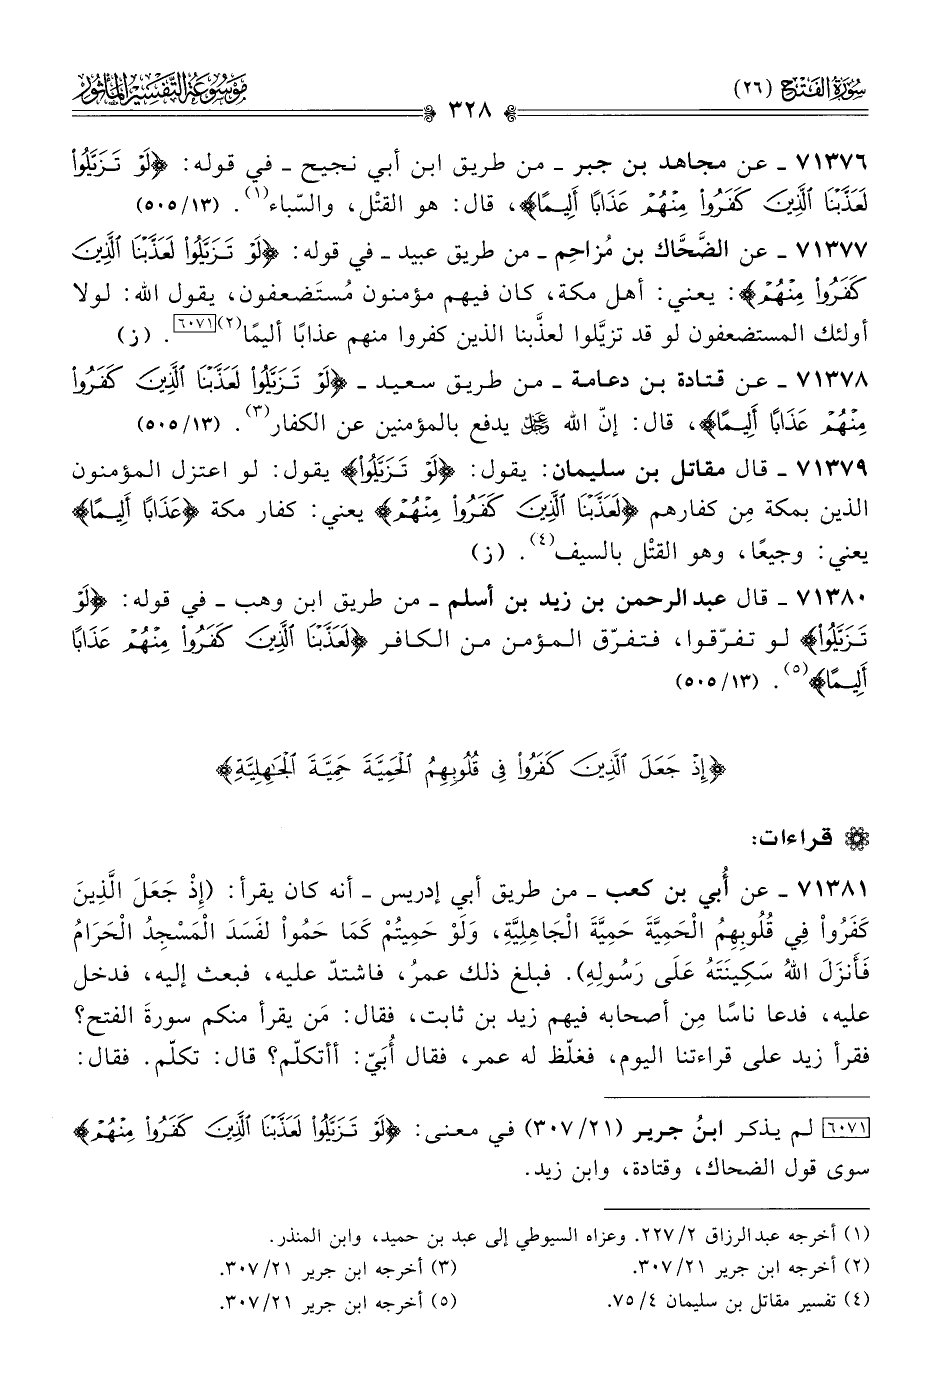 سُورَةُ الفَتْحِ (٢٦)
مَوْسُوعَة التَّفْسِيْر المَأْثُور
٣٢٨
٧١٣٧٦ ـ عن مجاهد بن جبر ـ من طريق ابن أبي نجيح ـ في قوله: ﴿لَوْ تَزَيَّلُوا۟
لَعَذَّبْنَا ٱلَّذِينَ كَفَرُوا۟ مِنْهُمْ عَذَابًا أَلِيمًا﴾، قال: هو القتْل، والسّباء(١). (٥٠٥/١٣)
٧١٣٧٧ ـ عن الضَّحَّاك بن مُزاحِم ـ من طريق عبيد ـ في قوله: ﴿لَوْ تَزَيَّلُوا۟ لَعَذَّبْنَا ٱلَّذِينَ
كَفَرُوا۟ مِنْهُمْ﴾: يعني: أهل مكة، كان فيهم مؤمنون مُستَضعفون، يقول الله: لولا
أولئك المستضعفون لو قد تزيَّلوا لعذَّبنا الذين كفروا منهم عذابًا أليمًا(٢)[٦٠٧١]. (ز)
٧١٣٧٨ ـ عن قتادة بن دعامة ـ من طريق سعيد ـ ﴿لَوْ تَزَيَّلُوا۟ لَعَذَّبْنَا ٱلَّذِينَ كَفَرُوا۟
مِنْهُمْ عَذَابًا أَلِيمًا﴾، قال: إنّ الله ﷻ يدفع بالمؤمنين عن الكفار(٣). (٥٠٥/١٣)
٧١٣٧٩ ـ قال مقاتل بن سليمان: يقول: ﴿لَوْ تَزَيَّلُوا۟﴾ يقول: لو اعتزل المؤمنون
الذين بمكة مِن كفارهم ﴿لَعَذَّبْنَا ٱلَّذِينَ كَفَرُوا۟ مِنْهُمْ﴾ يعني: كفار مكة ﴿عَذَابًا أَلِيمًا﴾
يعني: وجيعًا، وهو القتْل بالسيف(٤). (ز)
٧١٣٨٠ ـ قال عبد الرحمن بن زيد بن أسلم ـ من طريق ابن وهب ـ في قوله: ﴿لَوْ
تَزَيَّلُوا۟﴾ لو تفرّقوا، فتفرّق المؤمن من الكافر ﴿لَعَذَّبْنَا ٱلَّذِينَ كَفَرُوا۟ مِنْهُمْ عَذَابًا
أَلِيمًا﴾(٥). (٥٠٥/١٣)
﴿إِذْ جَعَلَ ٱلَّذِينَ كَفَرُوا۟ فِى قُلُوبِهِمُ ٱلْحَمِيَّةَ حَمِيَّةَ ٱلْجَٰهِلِيَّةِ﴾
قراءات:
٧١٣٨١ ـ عن أُبي بن كعب ـ من طريق أبي إدريس ـ أنه كان يقرأ: (إِذْ جَعَلَ الَّذِينَ
كَفَرُواْ فِي قُلُوبِهِمُ الْحَمِيَّةَ حَمِيَّةَ الْجَاهِلِيَّةِ، وَلَوْ حَمِيتُمْ كَمَا حَمُواْ لفَسَدَ الْمَسْجِدُ الْحَرَامُ
فَأَنزَلَ اللهُ سَكِينَتَهُ عَلَى رَسُولِهِ). فبلغ ذلك عمرُ، فاشتدّ عليه، فبعث إليه، فدخل
عليه، فدعا ناسًا مِن أصحابه فيهم زيد بن ثابت، فقال: مَن يقرأ منكم سورةَ الفتح؟
فقرأ زيد على قراءتنا اليوم، فغلَّظ له عمر، فقال أُبَيّ: أأتكلّم؟ قال: تكلّم. فقال:
[٦٠٧١] لم يذكر ابنُ جرير (٣٠٧/٢١) في معنى: ﴿لَوْ تَزَيَّلُوا۟ لَعَذَّبْنَا ٱلَّذِينَ كَفَرُوا۟ مِنْهُمْ﴾
سوى قول الضحاك، وقتادة، وابن زيد.
(١) أخرجه عبد الرزاق ٢٢٧/٢. وعزاه السيوطي إلى عبد بن حميد، وابن المنذر.
(٢) أخرجه ابن جرير ٣٠٧/٢١. (٣) أخرجه ابن جرير ٣٠٧/٢١.
(٤) تفسير مقاتل بن سليمان ٧٥/٤. (٥) أخرجه ابن جرير ٣٠٧/٢١.